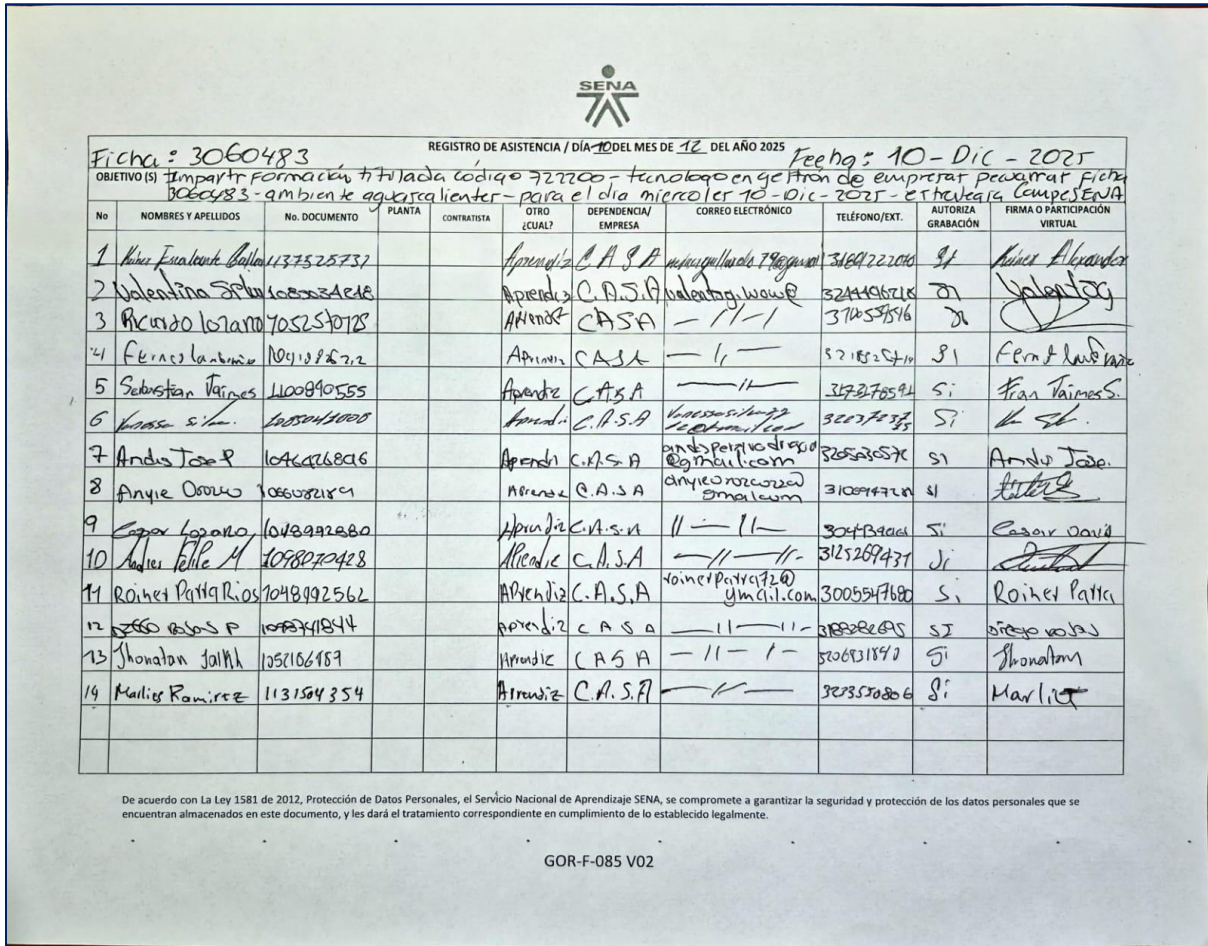 SENA
Ficha: 3060483 REGISTRO DE ASISTENCIA / DÍA 10 DEL MES DE 12 DEL AÑO 2025 Fecha: 10-Dic-2025
OBJETIVO (S) Impartir Formación titulada código 722200 - tecnologo en gestion de empresas pecuarias Ficha
3060483 - ambiente aguascalientes - para el día miercoles 10-Dic-2025 - estrategia CampeSENA
No NOMBRES Y APELLIDOS No. DOCUMENTO PLANTA CONTRATISTA OTRO ¿CUAL? DEPENDENCIA/ EMPRESA CORREO ELECTRÓNICO TELÉFONO/EXT. AUTORIZA GRABACIÓN FIRMA O PARTICIPACIÓN VIRTUAL
1 1137525737 Aprendiz C A S A SI Alexander
2 Valentina Aprendiz C.A.S.A SI Valentog
3 Ricardo lozano Aprendiz CASA — 11 — 1
4 Aprendiz CASA — 1, — SI
5 Sebastian Jaimes 1100890555 Aprendiz C.A.S.A — 11 — Si Fran Jaimes S.
6 Vanessa silva. Aprendiz C.A.S.A Si
7 Andis Jose P 1046426896 Aprendi C.A.S.A @gmail.com SI Andis Jose.
8 Anyie Orozco Aprendiz C.A.S.A SI
9 Cesar Lozano 1048992880 Aprendiz C.A.S.A 11 — 11 — Si Cesar David
10 Andres Felipe M 1098070428 Aprendiz C.A.S.A — 11 — 11 - 3125269437 Si
11 Roiner Parra Rios 1048992562 APrendiz C.A.S.A roinerparra72@ gmail.com 3005547680 Si Roiner Parra
12 Diego rojas P 1098741844 Aprendiz C A S A — 11 — 11 - SI Diego rojas
13 Jhonatan 1052186189 Aprendiz C A S A — 11 — 1 - Si Jhonatan
14 Marlies Ramirez 1131504354 Aprendiz C.A.S.A — 11 — 3233550806 Si
De acuerdo con La Ley 1581 de 2012, Protección de Datos Personales, el Servicio Nacional de Aprendizaje SENA, se compromete a garantizar la seguridad y protección de los datos personales que se
encuentran almacenados en este documento, y les dará el tratamiento correspondiente en cumplimiento de lo establecido legalmente.
GOR-F-085 V02